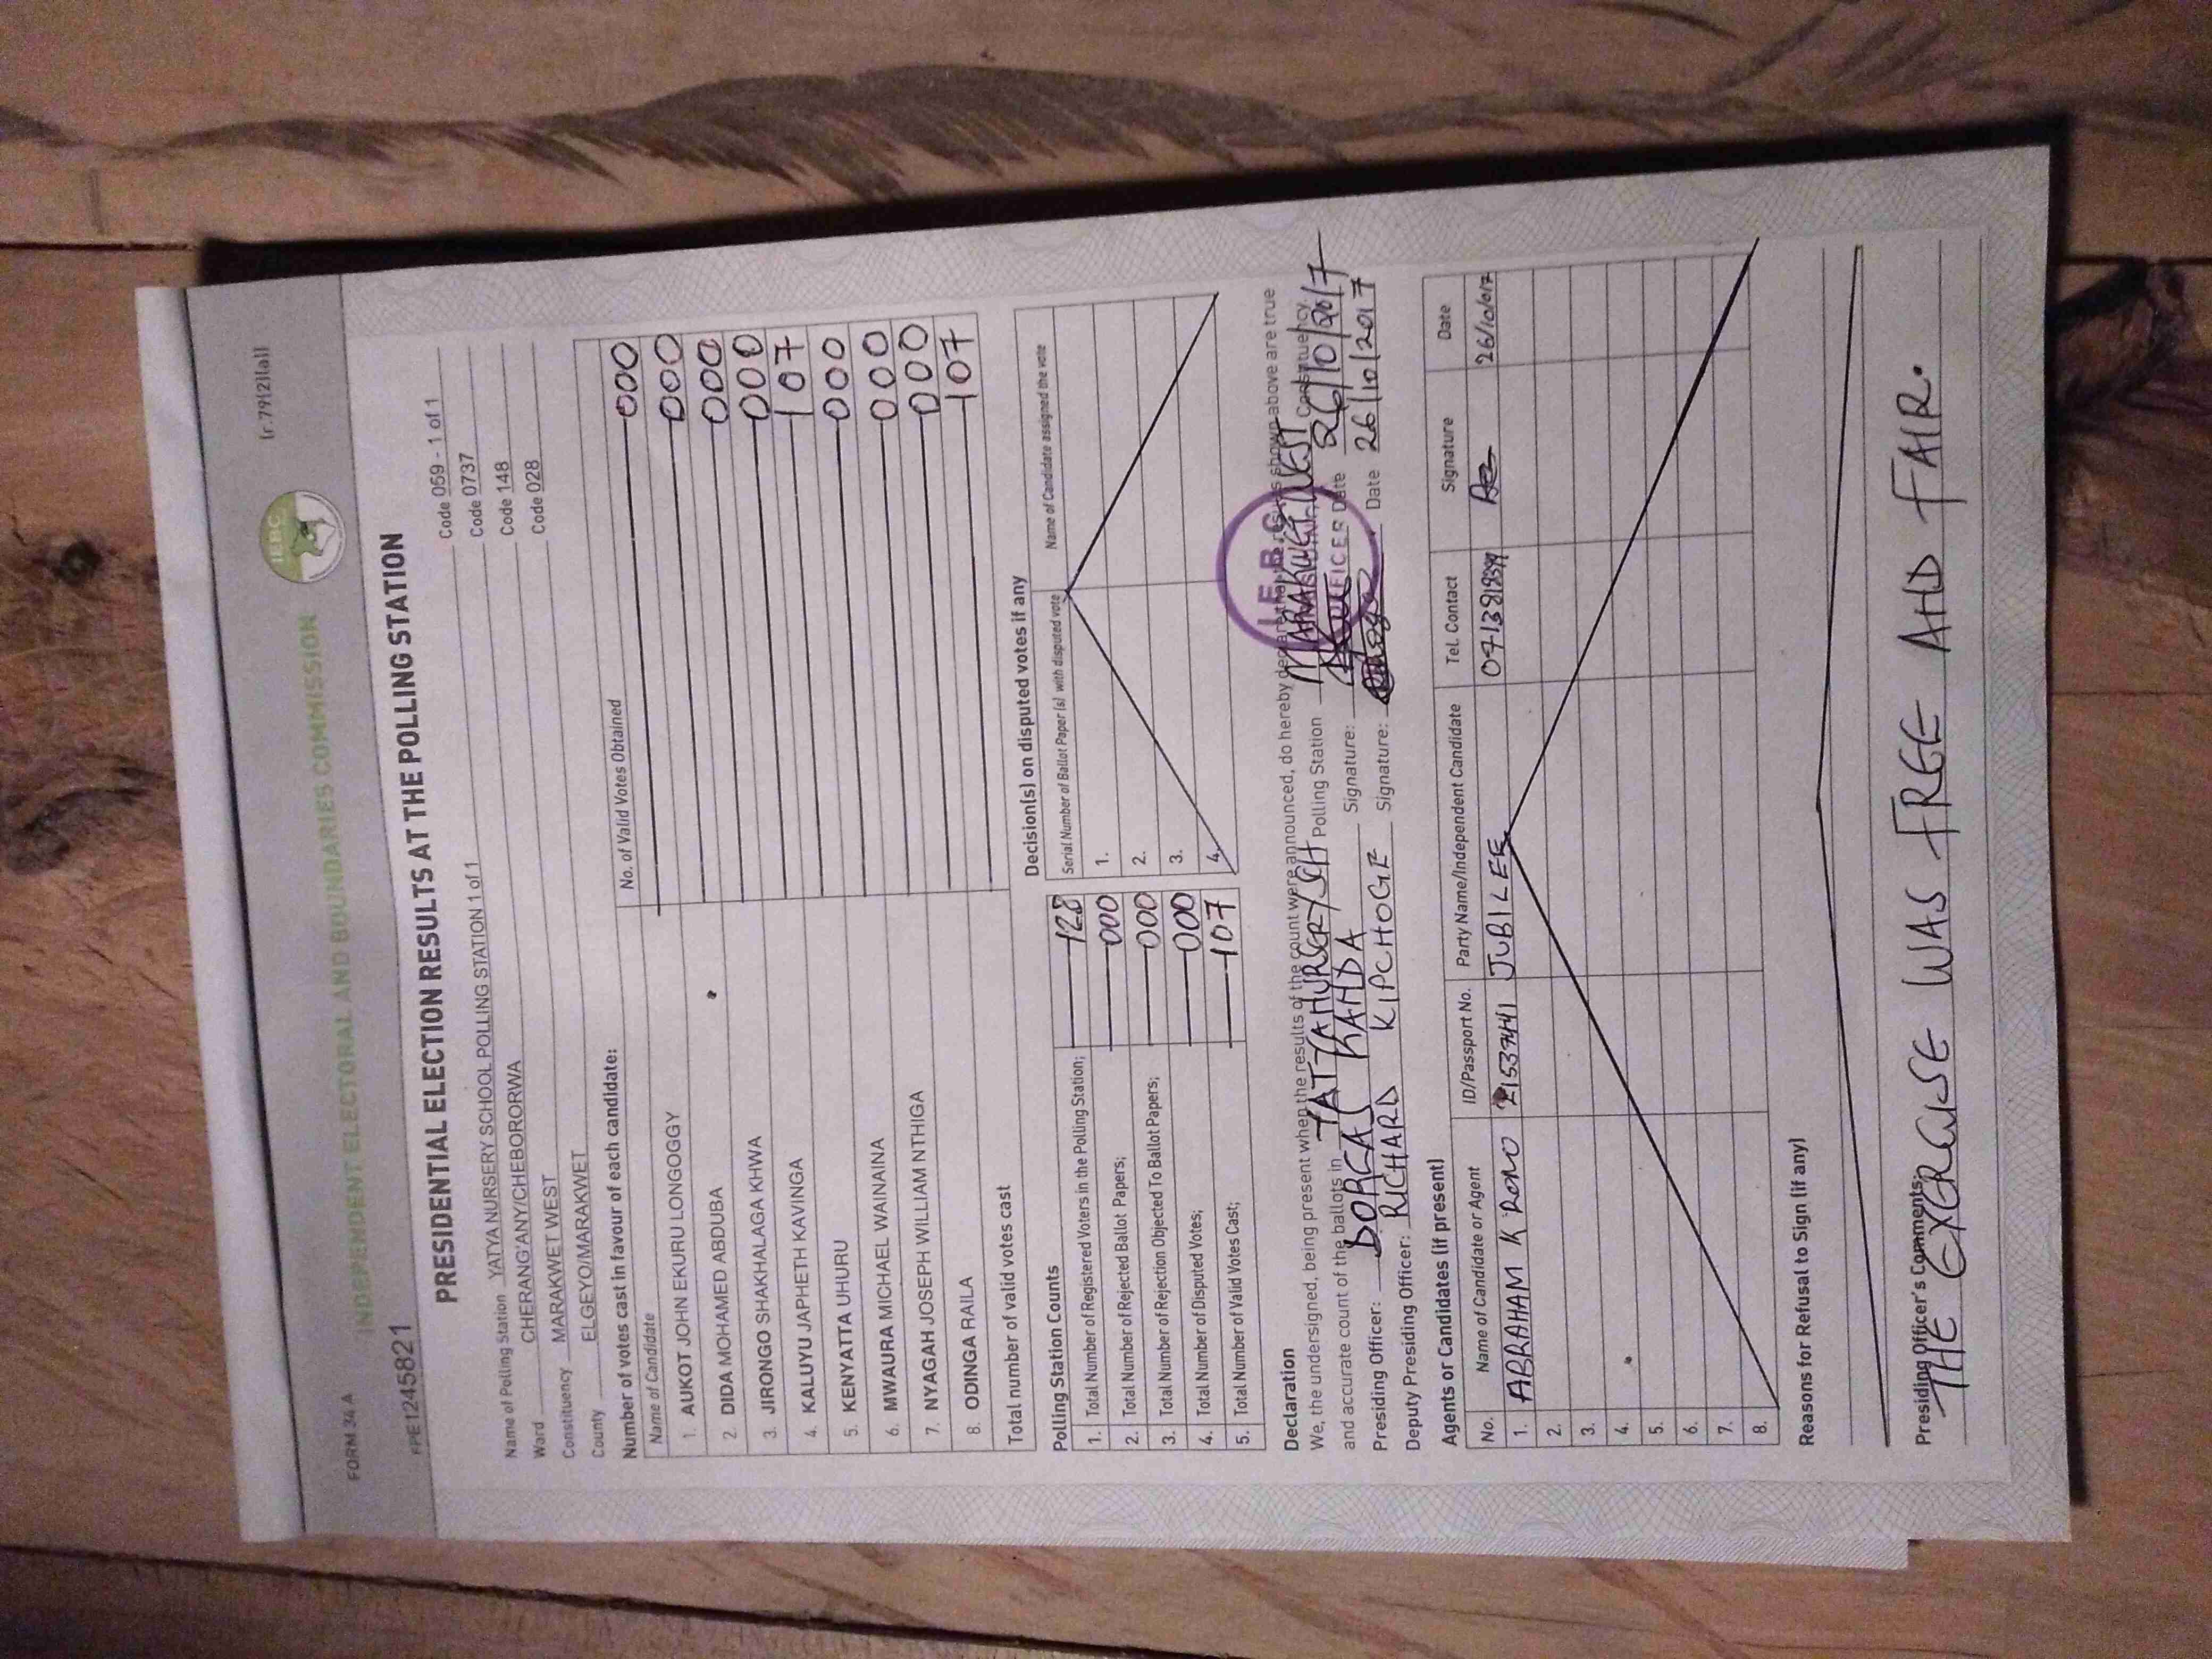 FORM 34 A
(r.79(2)(a))
IEBC
INDEPENDENT ELECTORAL AND BOUNDARIES COMMISSION
PPE1245821
PRESIDENTIAL ELECTION RESULTS AT THE POLLING STATION
Name of Polling Station YATYA NURSERY SCHOOL POLLING STATION 1 of 1 Code 059 - 1 of 1
Ward CHERANG'ANY/CHEBORORWA Code 0737
Constituency MARAKWET WEST Code 148
County ELGEYO/MARAKWET Code 028
Number of votes cast in favour of each candidate:
Name of Candidate No. of Valid Votes Obtained
1. AUKOT JOHN EKURU LONGOGGY 000
2. DIDA MOHAMED ABDUBA 000
3. JIRONGO SHAKHALAGA KHWA 000
4. KALUYU JAPHETH KAVINGA 000
5. KENYATTA UHURU 107
6. MWAURA MICHAEL WAINAINA 000
7. NYAGAH JOSEPH WILLIAM NTHIGA 000
8. ODINGA RAILA 000
Total number of valid votes cast 107
Polling Station Counts
1. Total Number of Registered Voters in the Polling Station; 128
2. Total Number of Rejected Ballot Papers; 000
3. Total Number of Rejection Objected To Ballot Papers; 000
4. Total Number of Disputed Votes; 000
5. Total Number of Valid Votes Cast; 107
Decision(s) on disputed votes if any
Serial Number of Ballot Paper (s) with disputed vote Name of Candidate assigned the vote
1.
2.
3.
4.
Declaration
We, the undersigned, being present when the results of the count were announced, do hereby declare that the results shown above are true
and accurate count of the ballots in Polling Station MARAKWET WEST Constituency.
Presiding Officer: DORCAS KAHDA Signature: Date 26/10/2017
Deputy Presiding Officer: RICHARD KIPCHOGE Signature: Date 26/10/2017
I.E.B.C
OFFICER
Agents or Candidates (if present)
No. Name of Candidate or Agent ID/Passport No. Party Name/Independent Candidate Tel. Contact Signature Date
1. ABRAHAM K RONO JUBILEE
2.
3.
4.
5.
6.
7.
8.
Reasons for Refusal to Sign (if any)
Presiding Officer's Comments:
THE EXERCISE WAS FREE AHD FAIR.